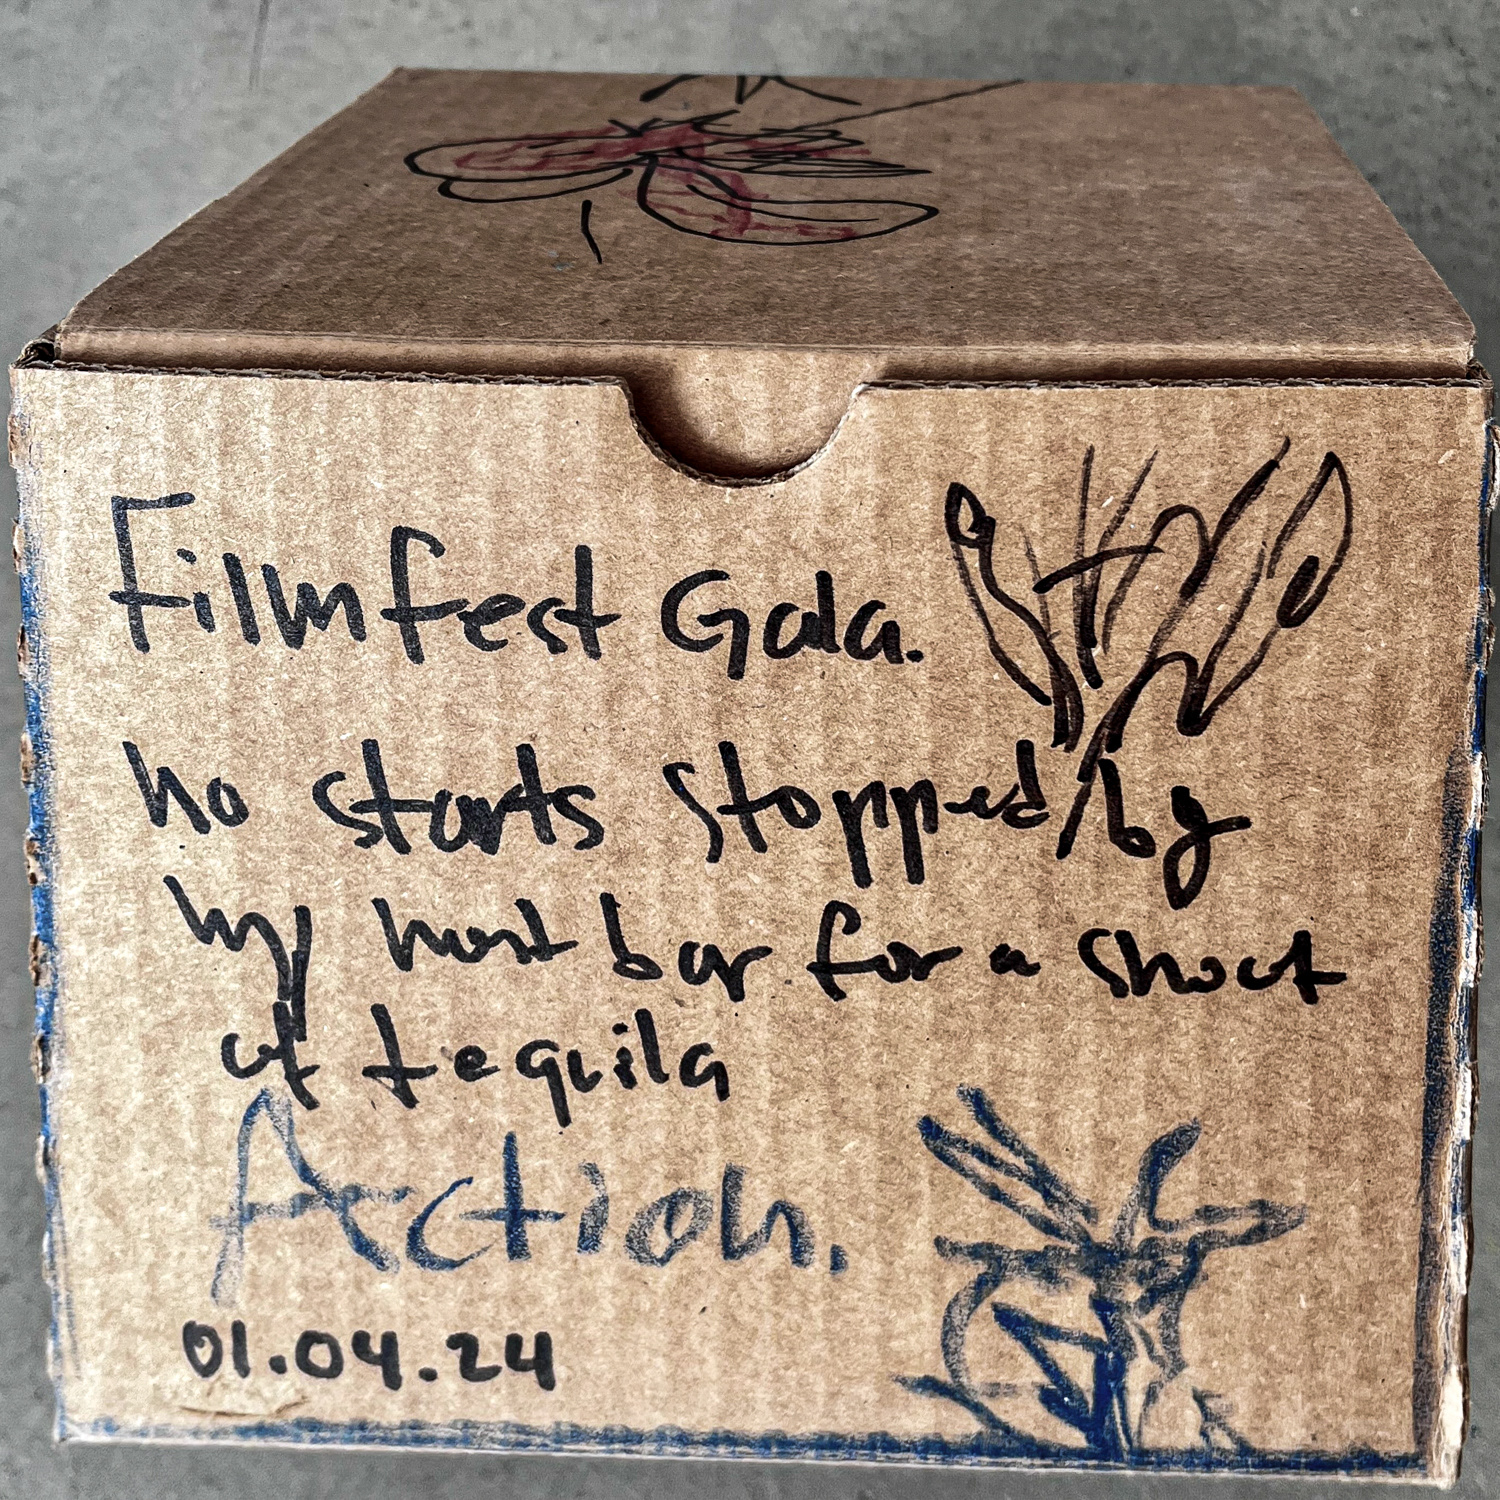 Filmfest Gala.
no starts stopped by
my host bar for a shoct
of tequila
Action.
01.04.24